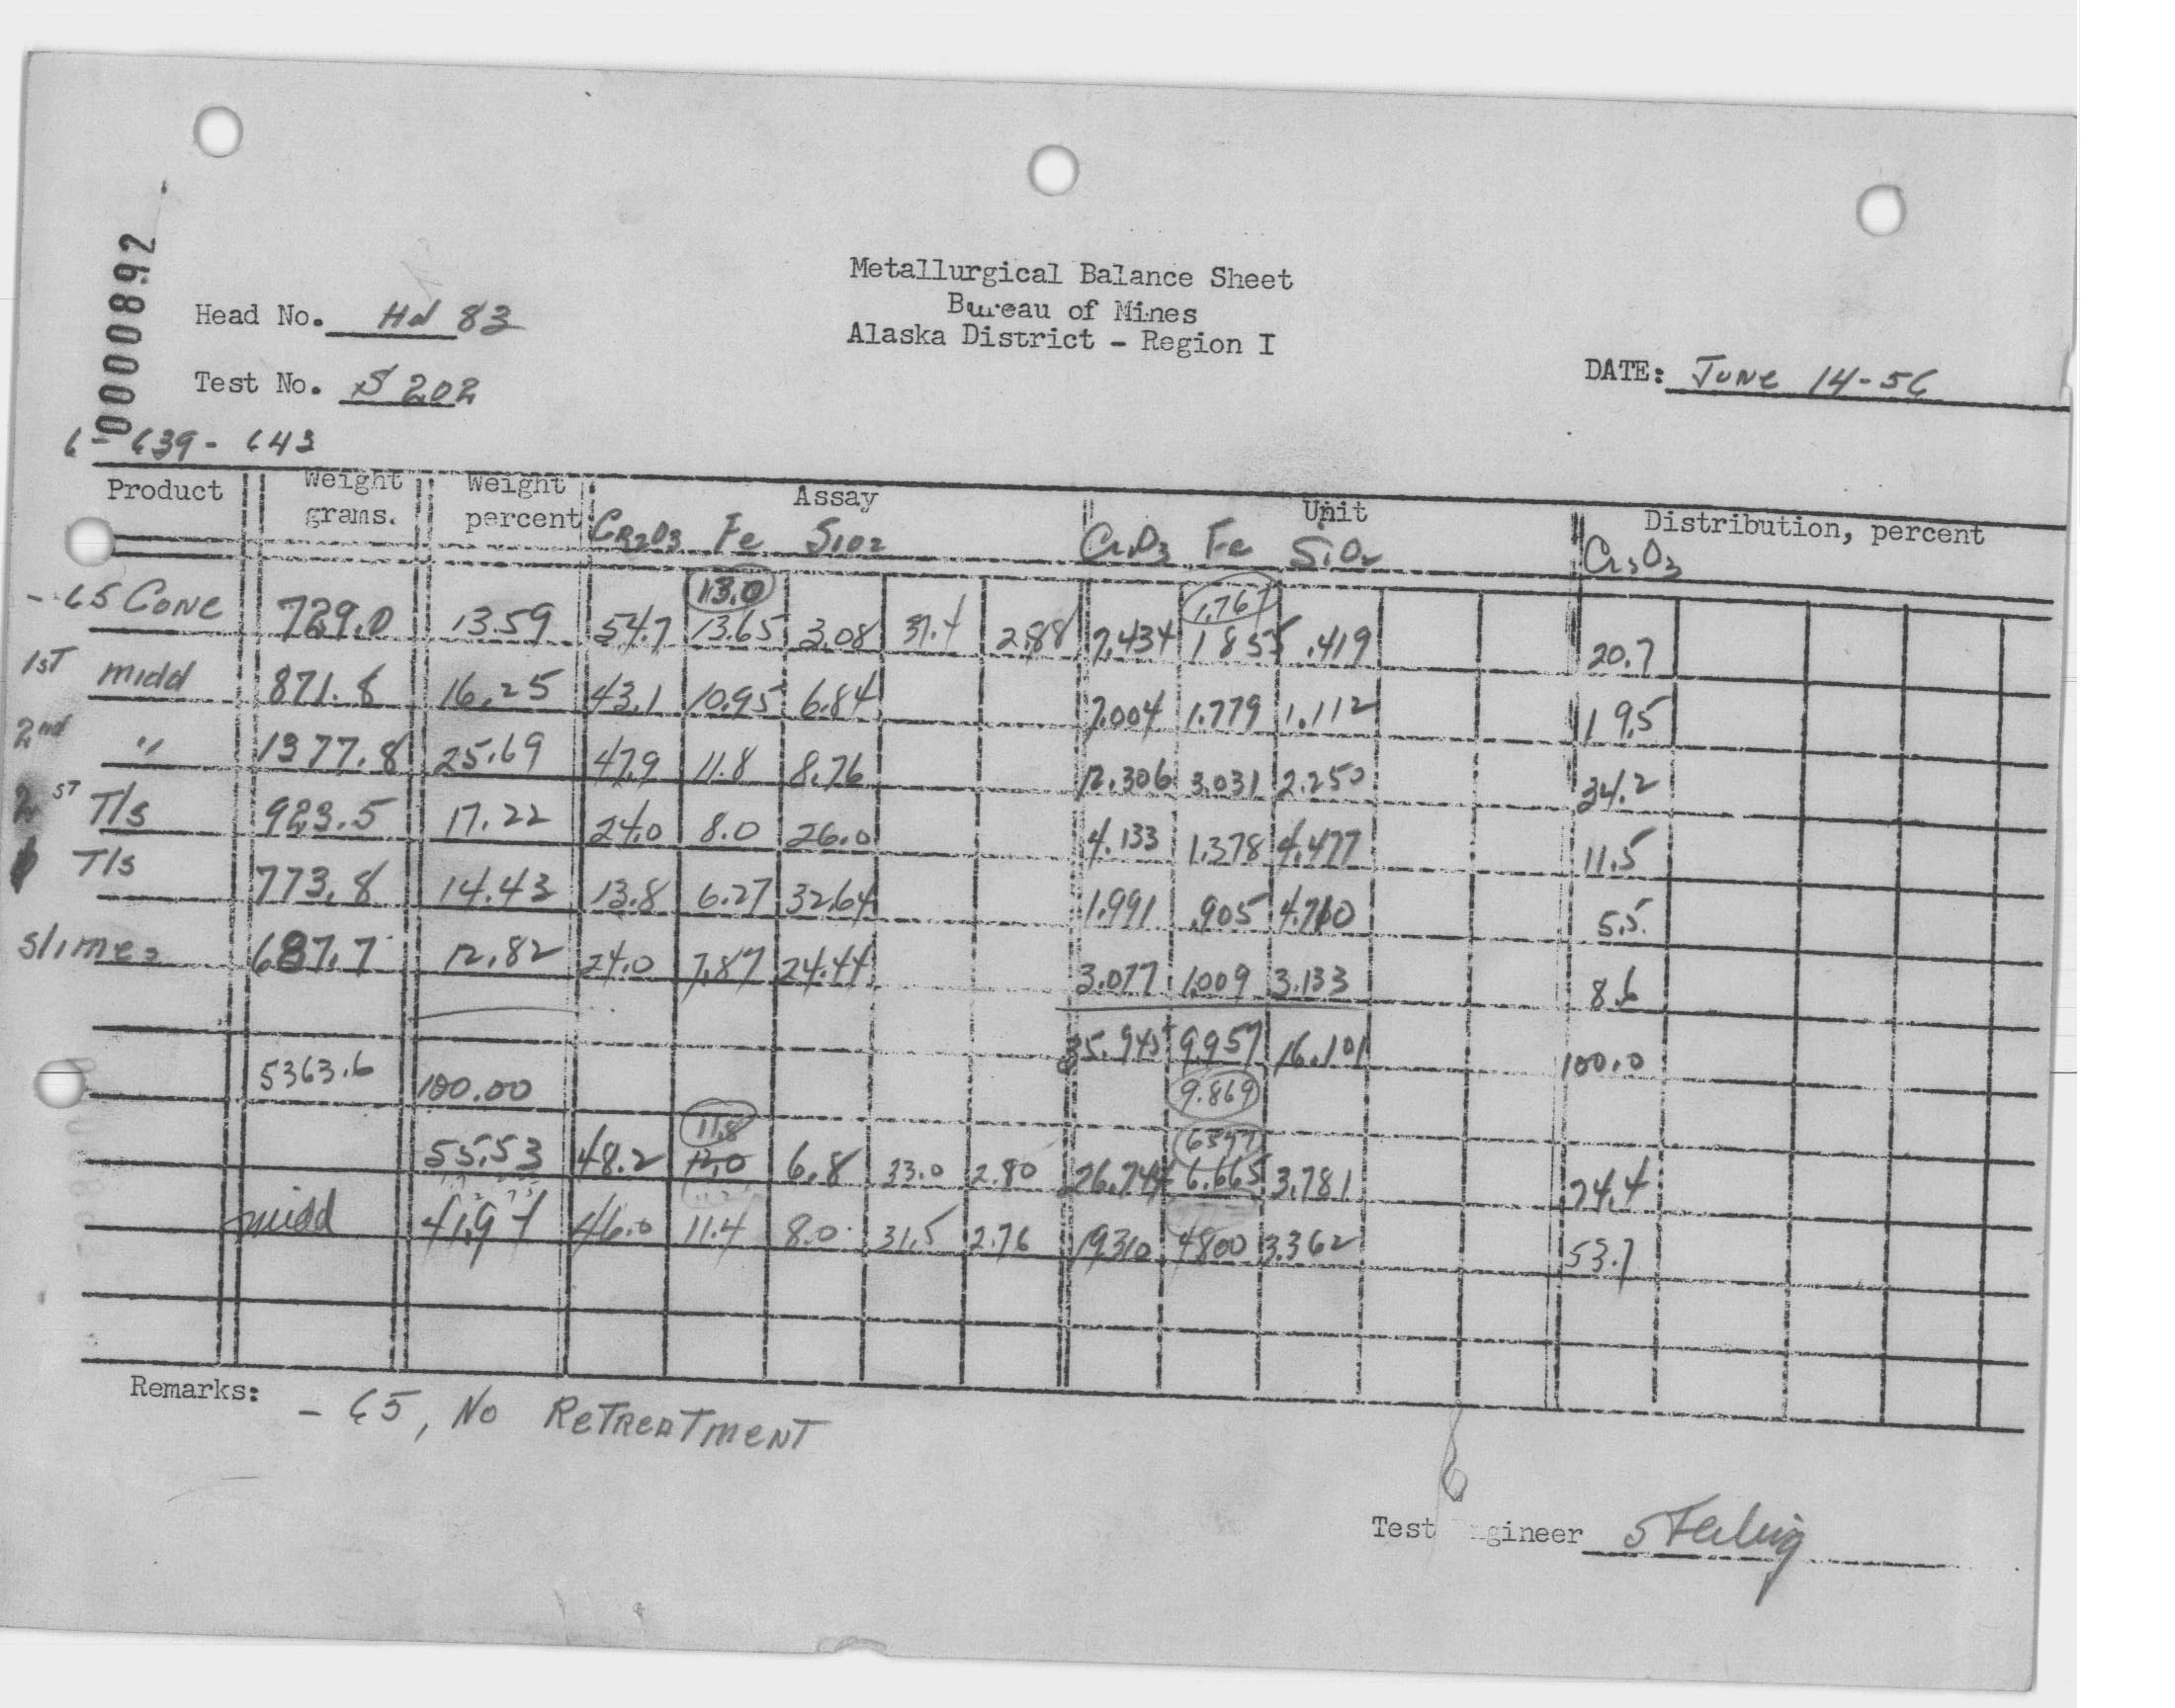 0000892
Metallurgical Balance Sheet
Bureau of Mines
Alaska District - Region I
Head No. Hd 83
Test No. S 202
DATE: June 14-56
6-639-643
Product Weight grams. Weight percent Assay Unit Distribution, percent
Cr2O3 Fe SiO2 Cr2O3 Fe SiO2 Cr2O3
13.0 1.767
-65 Conc 729.0 13.59 54.7 13.65 3.08 37.4 2.88 7.434 1855 .419 20.7
1st midd 871.8 16.25 43.1 10.95 6.84 7.004 1.779 1.112 19.5
2nd " 1377.8 25.69 47.9 11.8 8.76 12.306 3.031 2.250 34.2
2 st T/s 923.5 17.22 24.0 8.0 26.0 4.133 1.378 4.477 11.5
1 T/s 773.8 14.43 13.8 6.27 32.64 1.991 .905 4.710 5.5
slimes 687.7 12.82 24.0 7.87 24.44 3.077 1.009 3.133 8.6
35.945 9.957 16.101 100.0
5363.6 100.00 9.869
11.8 6577
55.53 48.2 12.0 6.8 33.0 2.80 26.744 6.665 3.781 74.4
midd 41.94 46.0 11.4 8.0 31.5 2.76 19.310 4800 3.362 53.7
Remarks: -65, No Retreatment
Test gineer Sterling